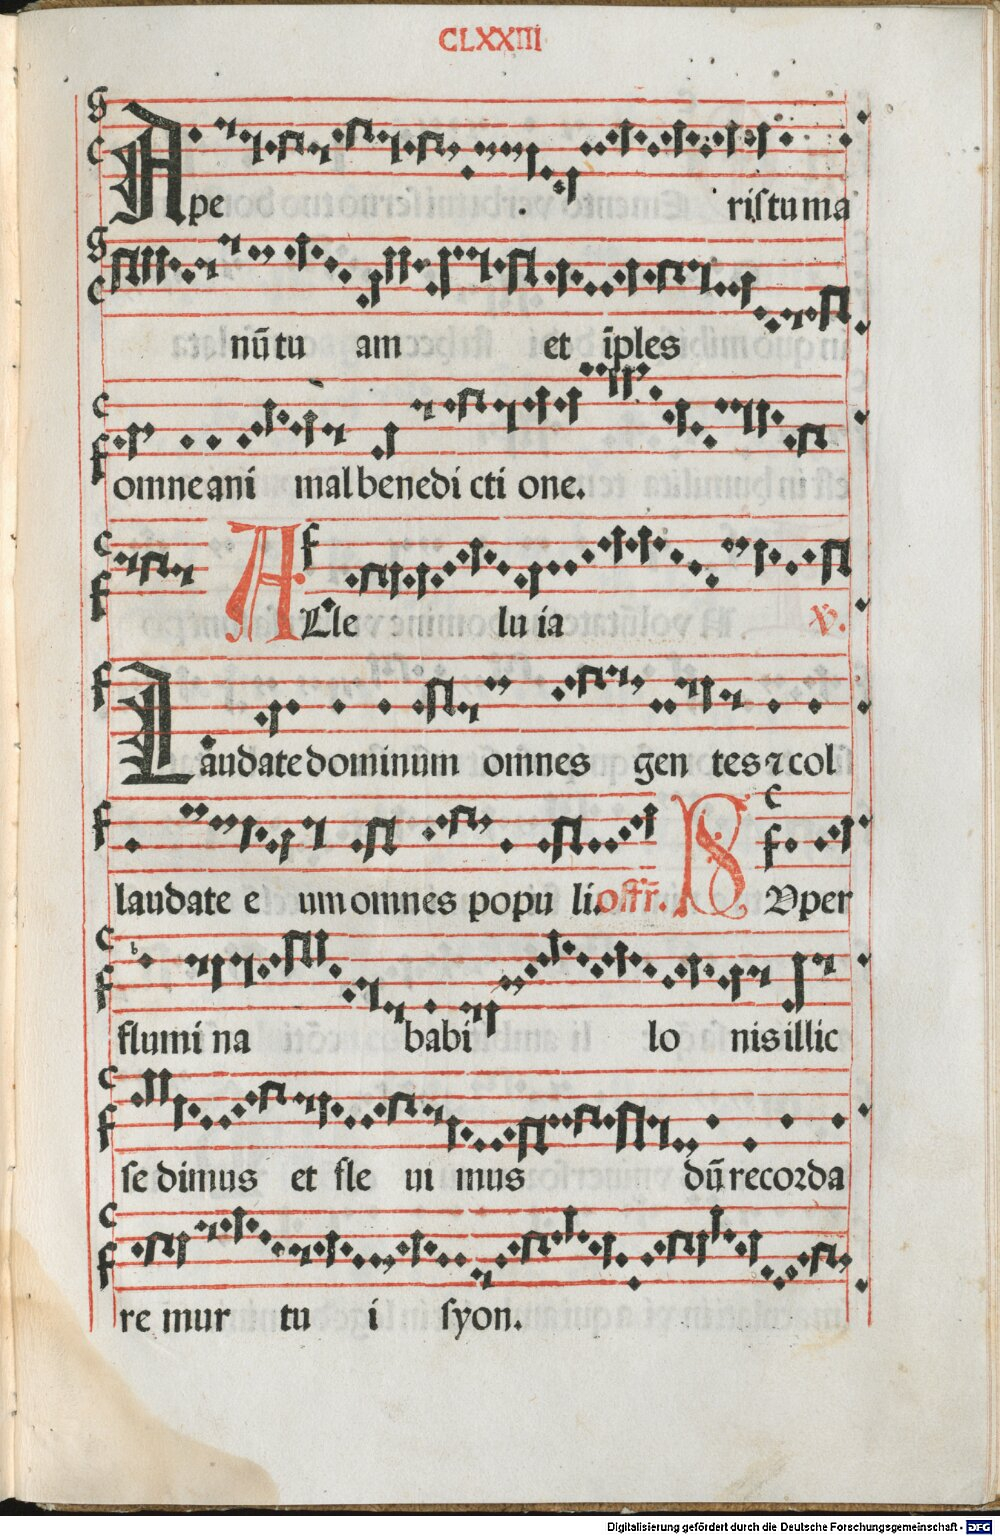 CLXXIII
Ape . ris tu ma
nū tu am et īples
omne ani mal benedi cti one.
ALle lu ia ℣.
Laudate dominum omnes gen tes ⁊ col
laudate e um omnes popu li. offr̄. SUper
flumi na babi lo nis illic
se dimus et fle ui mus dū recorda
re mur tu i syon.
Digitalisierung gefördert durch die Deutsche Forschungsgemeinschaft - DFG